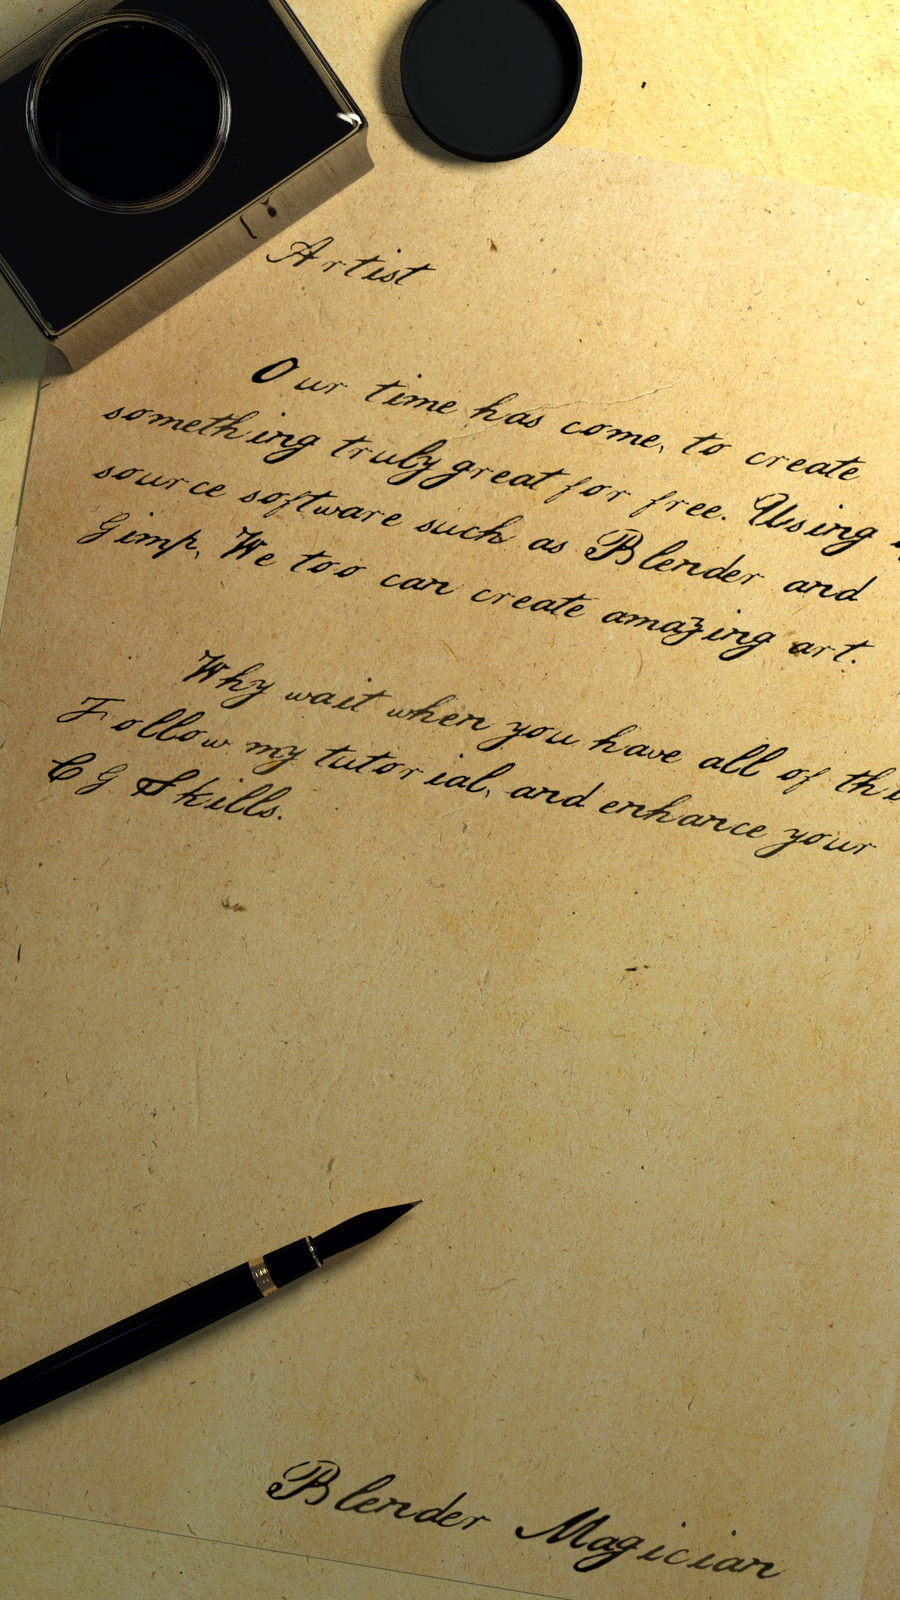 Artist
Our time has come, to create
something truly great for free. Using
source software such as Blender and
Gimp, We too can create amazing art.
Why wait when you have all of
Follow my tutorial, and enhance your
CG Skills.
Blender Magician